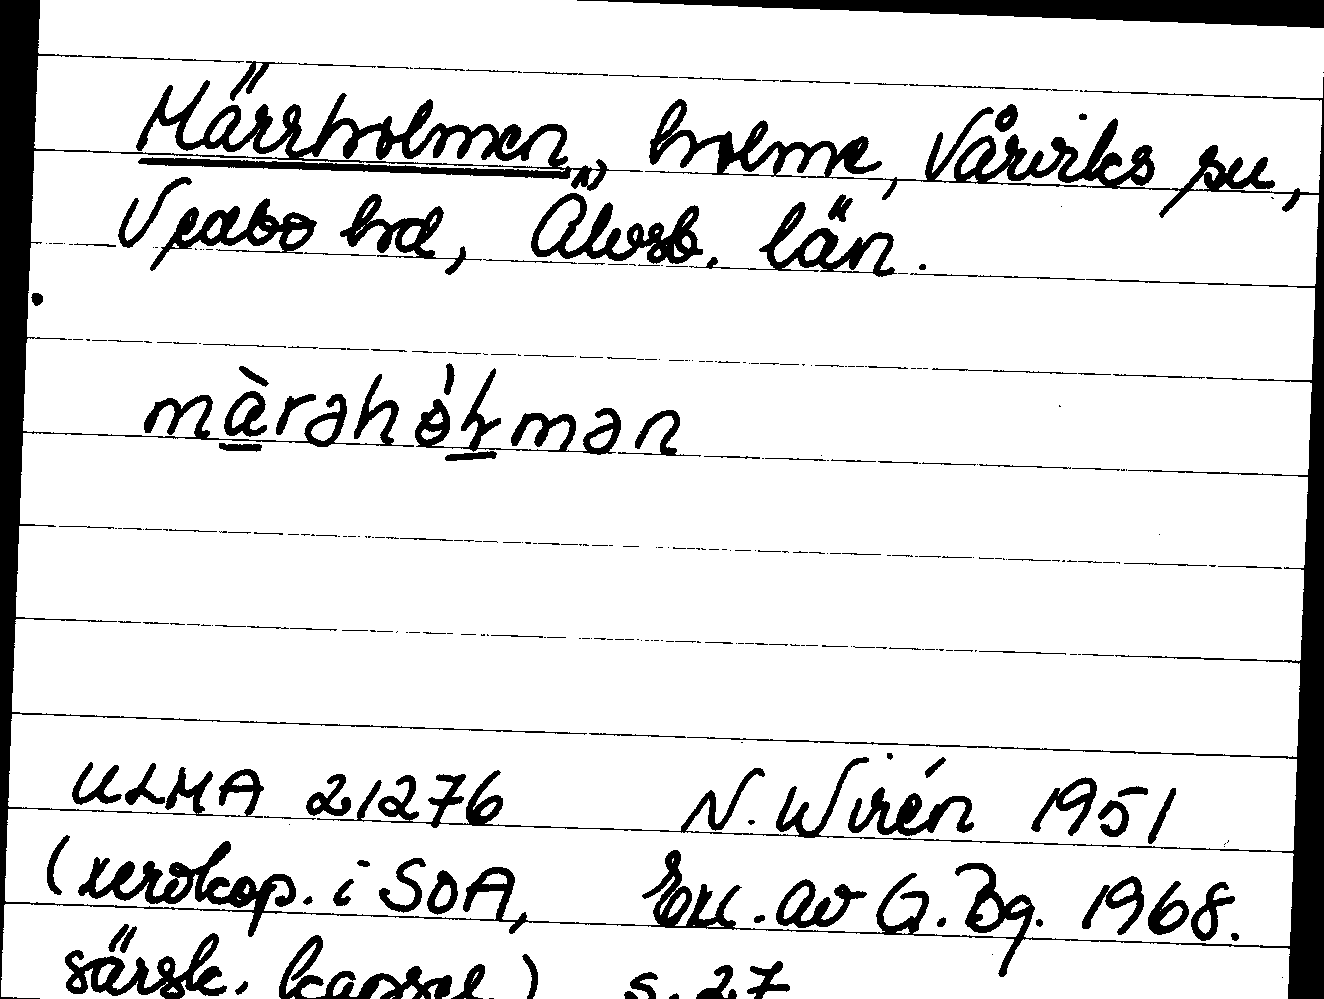 Märrholmen, holme, Vårviks sn,
Vedbo hd, Älvsb. län.
màrəhól̥mən
ULMA 21276 N. Wirén 1951
(xerokop. i SOA, Exc. av G. Bg. 1968.
särsk. kapsel) s. 27